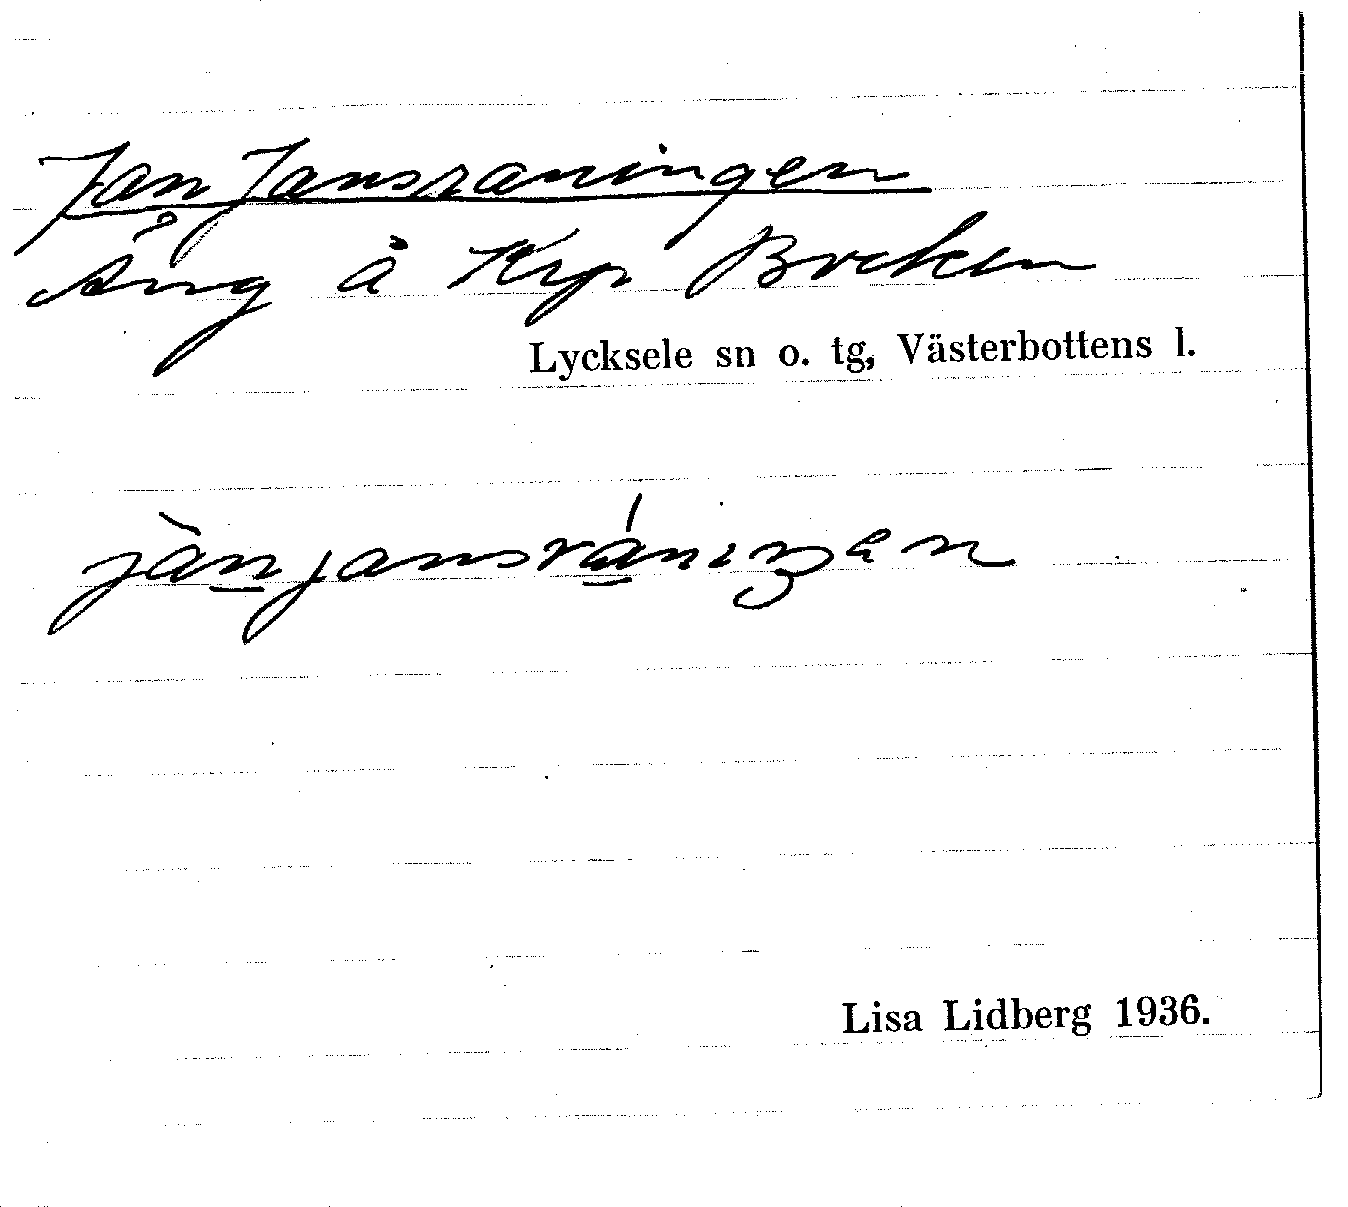 Jan Jansraningen
Äng å Krp Breken
Lycksele sn o. tg, Västerbottens l.
jànjansrániŋən
Lisa Lidberg 1936.